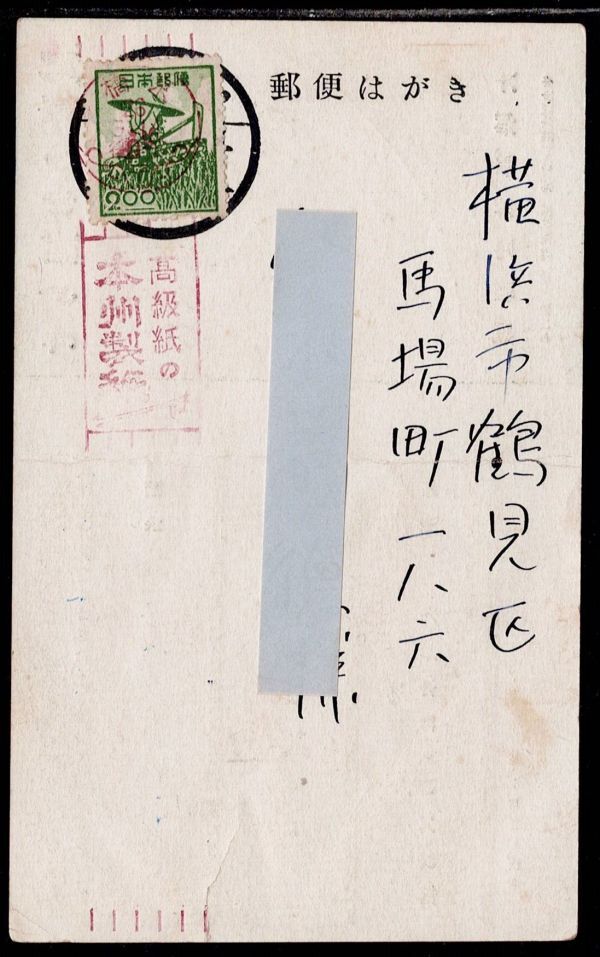 郵便はがき
横浜市鶴見区
馬場町一八六
日本郵便
2.00
高級紙の
本州製紙